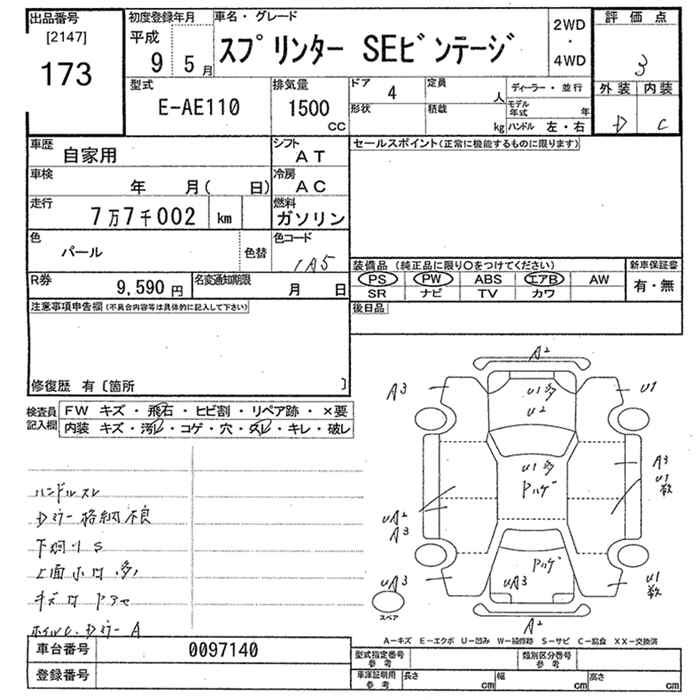 出品番号
[2147]
173
初度登録年月
平成
9 5月
車名・グレード
スプリンター SEビンテージ
2WD
・
4WD
評価点
3
外装 内装
D C
型式
E-AE110
排気量
1500
CC
ドア 4
形状
定員 人
積載 kg
ディーラー・並行
モデル年式 年
ハンドル 左・右
車歴 自家用
シフト AT
セールスポイント(正常に機能するものに限ります)
車検 年 月( 日)
冷房 AC
走行 7万7千002 km
燃料 ガソリン
色 パール 色替
色コード 1A5
装備品 (純正品に限り○をつけてください)
新車保証書
PS PW ABS エアB AW
有・無
SR ナビ TV カワ
R券 9,590円
名変通知期限 月 日
後日品
注意事項申告欄(不具合内容等は具体的に記入して下さい)
修復歴 有 〔箇所 〕
検査員
記入欄
FW キズ・飛石・ヒビ割・リペア跡・×要
内装 キズ・汚レ・コゲ・穴・スレ・キレ・破レ
ハンドルスレ
Dミラー格納不良
下廻りS
上面小凹多
キズ凹ドアセ
ホイルC.Dミラー A
A2
A3
U1多
U2
U1
U1多
Pハゲ
A3
U1
数
UA2
A3
Pハゲ
UA3
UA3
U1
数
A2
スペア
A-キズ E-エクボ U-凹み W-補修跡 S-サビ C-腐食 XX-交換済
車台番号 0097140
登録番号
型式指定番号
参考
類別区分番号
参考
車庫証明用
参考
長さ cm
幅 cm
高さ cm